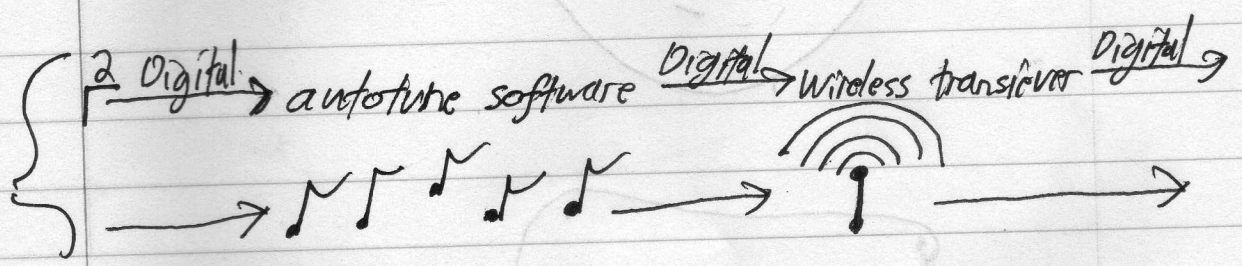 2 Digital autotune software Digital wireless transiever Digital